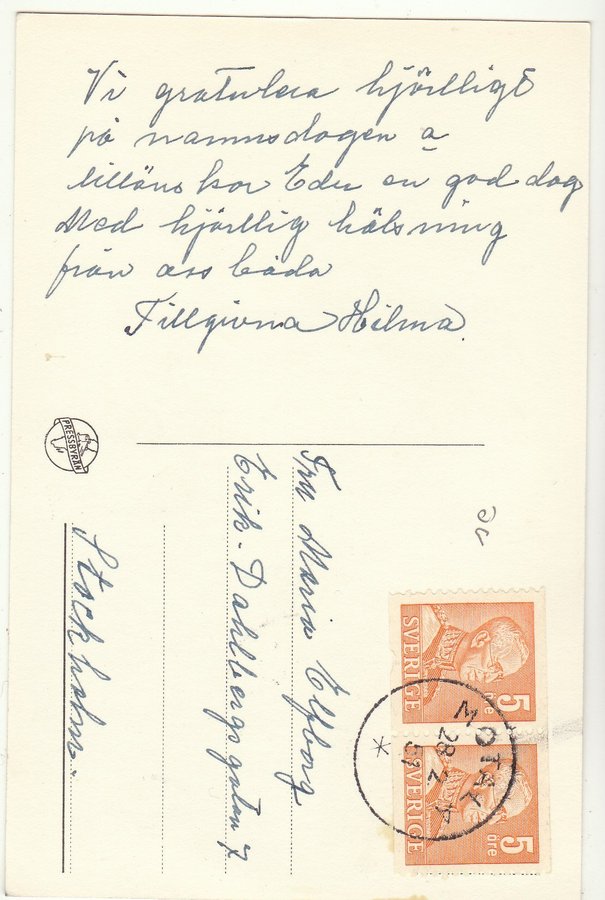 Vi gratulera hjärtligt
på namnsdagen o
tillönskar Eder en god dag
Med hjärtlig hälsning
från oss båda
Tillgivna Hilma.
PRESSBYRÅN
Fru Maria Elfborg
Erik-Dahlbergsgatan 7
Stockholm.
SVERIGE
5
öre
SVERIGE
5
öre
MOTALA
28 2
57